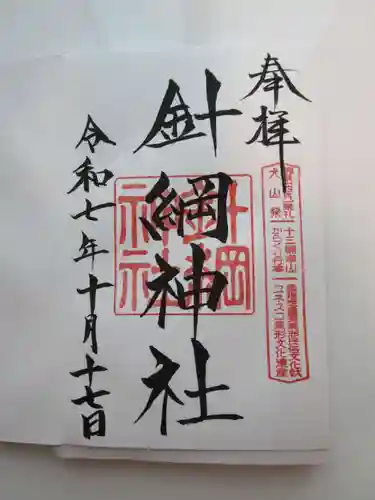 奉拝
犬山祭
十三輌車山
からくり奉納
ユネスコ無形文化遺産
針綱神社
針綱神社
令和七年十月十七日